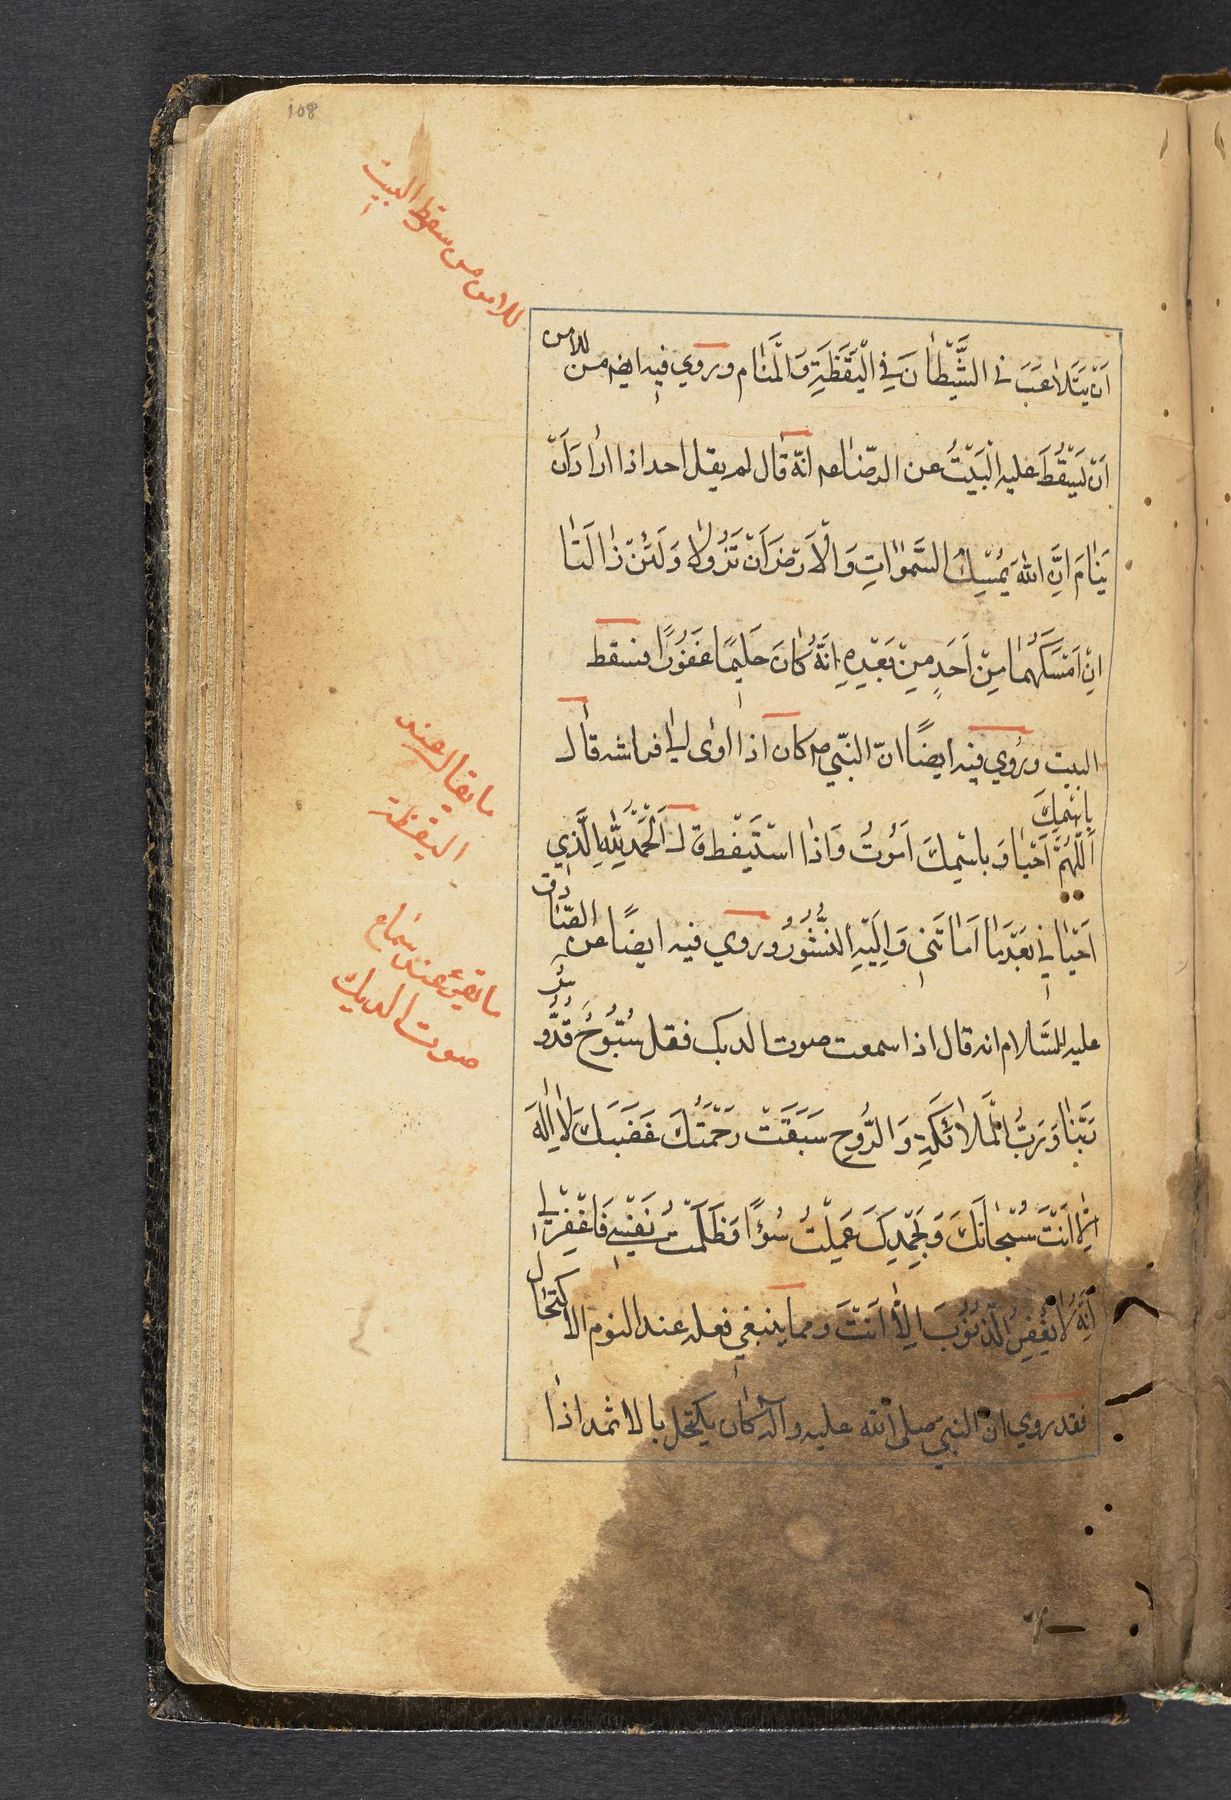 108
للامن من سقوط البيت
اَنْ يَتَلاعَبَ بى الشَّيْطانَ فِي الْيَقَظَةِ وَالْمَنٰام وروي فيه ايضا من للامن
اَنْ يَسْقُطَ عليه الْبَيْتُ عن الرضا عم انّه قال لم يقل احد اذا اراد اَنْ
يَنٰامَ اِنَّ اللّٰهَ يُمْسِكُ السَّمٰوٰاتِ وَالْاَرْضَ اَنْ تَزُولاٰ وَلَئِنْ زٰالَتٰا
اِنْ اَمْسَكَهُمٰا مِنْ اَحَدٍ مِنْ بَعْدِهِ اِنَّهُ كٰانَ حَلِيمًا غَفُورًا فسقط
البيت وروُي فيه ايضًا انّ النّبي ص كان اذا اوٰى الى فراشه قال
بِاسْمِكَ
اَللّٰهُمَّ اَحْيٰا وَبِاسْمِكَ اَمُوتُ وَاذٰا اسْتَيْقظ قال اَلْحَمْدُ لِلّٰهِ الَّذي
اَحْيٰانِي بَعْدَمٰا اَمٰاتَنِي وَاِلَيْهِ النُّشُورُ وروي فيه ايضًا عن الصّادق
عليه السَّلام انه قال اذا سمعت صوت الديك فقل سُبُّوحٌ قُدُّوسٌ
رَبُّنٰا وَرَبُّ الْمَلاٰئِكَةِ وَالرُّوحِ سَبَقَتْ رَحْمَتُكَ غَضَبَكَ لاٰ اِلٰهَ
اِلاّٰ اَنْتَ سُبْحٰانَكَ وَبِحَمْدِكَ عَمِلْتُ سُوءًا وَظَلَمْتُ نَفْسِي فَاغْفِرْ لِي
اِنَّهُ لاٰ يَغْفِرُ الذُّنُوبَ اِلاّٰ اَنْتَ ومما ينبغي فعله عند النوم الاكتحال
فقد روي ان النبي صلى الله عليه وآله كان يكتحل بالاثمد اذا
ما يقال عند
اليقظة
ما يقرئ عند سماع
صوت الديك